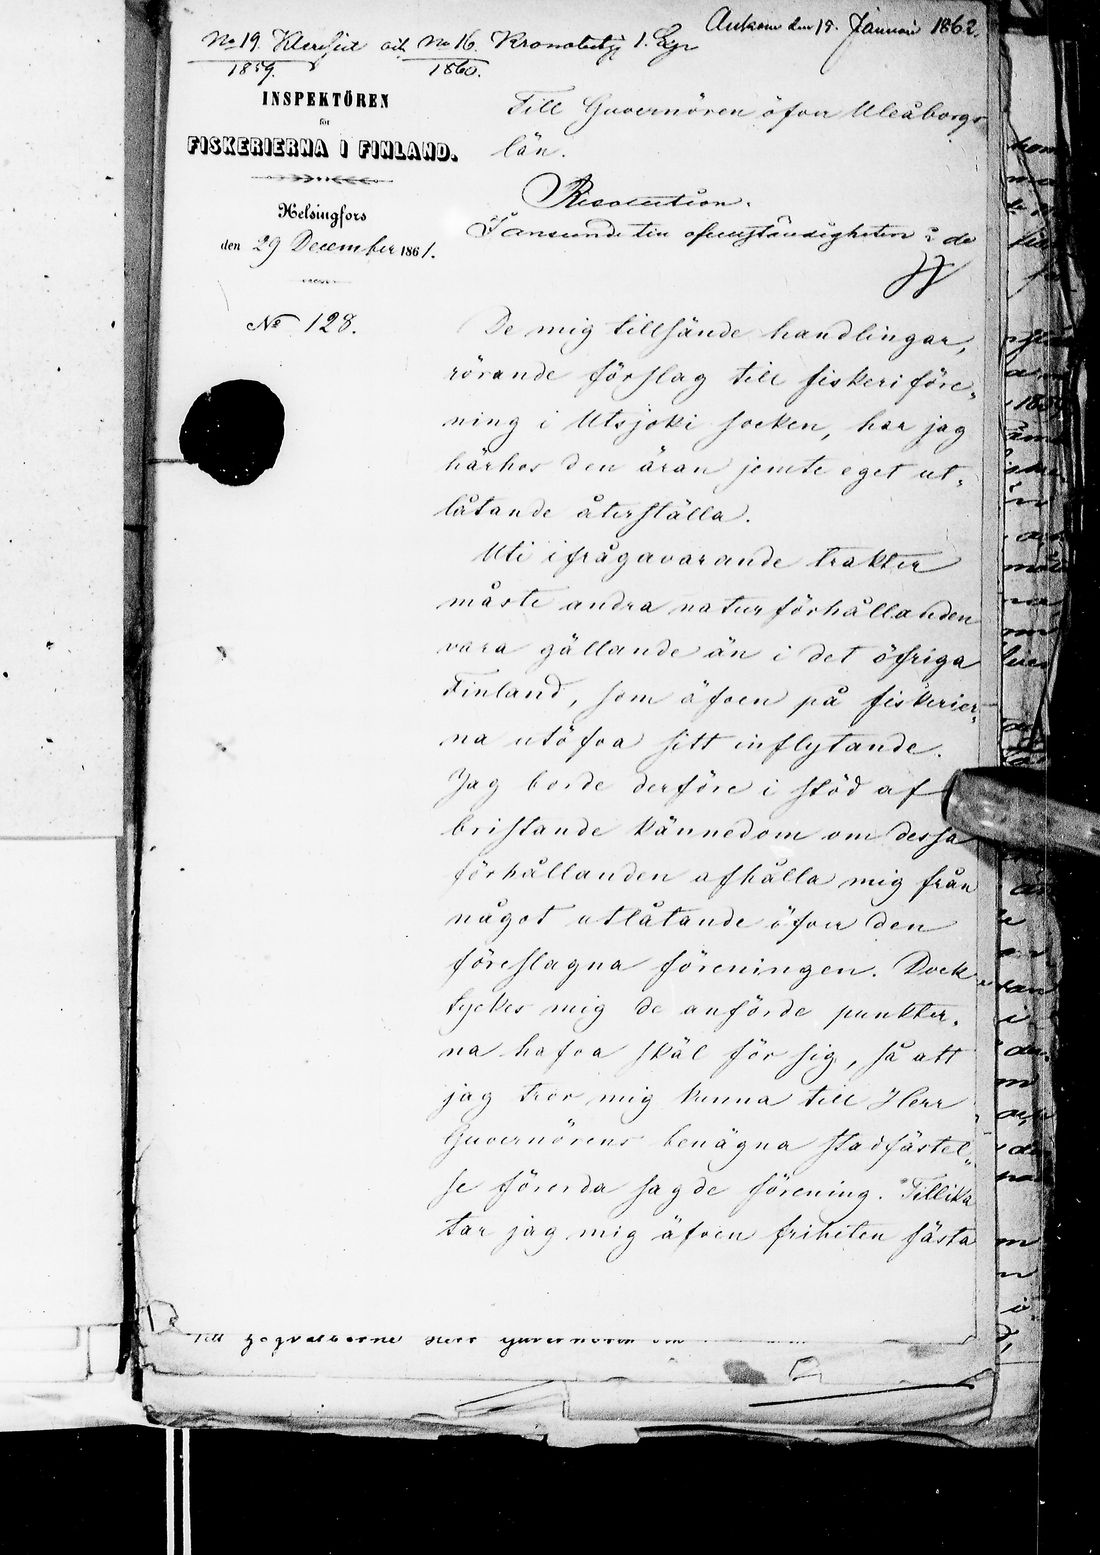 Ankom den 18. Januari 1862.
No 19. och No 16. 1. Exp
1859. 1860.
INSPEKTÖREN
för
FISKERIERNA I FINLAND.
Helsingfors
den 29 December 1861.
No 128.
Till Guvernören öfver Uleåborgs
län.
Resolution.
De mig tillsände handlingar,
rörande förslag till fiskeriföre-
ning i Utsjoki socken, har jag
härhos den äran jemte eget ut-
låtande återställa.
Uti ifrågavarande trakter
måste andra naturförhållanden
vara gällande än i det öfriga
Finland, som äfven på fiskerier-
na utöfva sitt inflytande.
Jag borde derföre i stöd af
bristande kännedom om dessa
förhållanden afhålla mig från
något utlåtande öfver den
föreslagna föreningen. Dock
tyckes mig de anförde punkter-
na hafva skäl för sig, så att
jag tror mig kunna till Herr
Guvernörens benägna stadfästel-
se förorda sagde förening. Tillika
tar jag mig äfven friheten fästa
Till Högvälborne Herr Guvernören